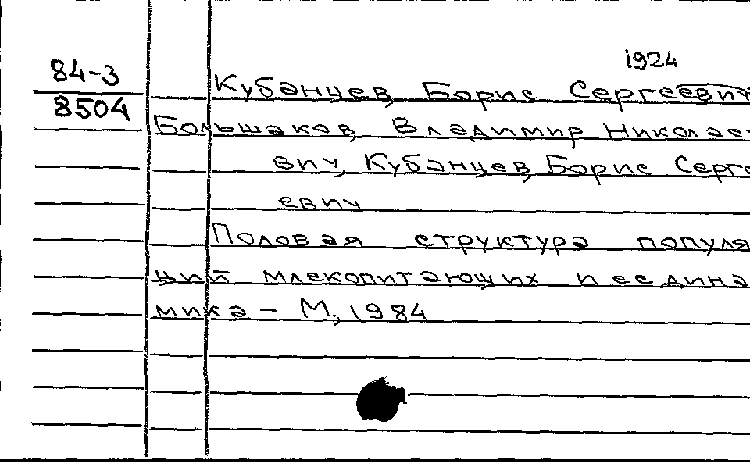 1924
84-3
8504
Кубанцев, Борис Сергеевич
Большаков, Владимир Николае-
вич, Кубанцев, Борис Серге
евич
Половая структура популя
ций млекопитающих и ее дина
мика – М, 1984